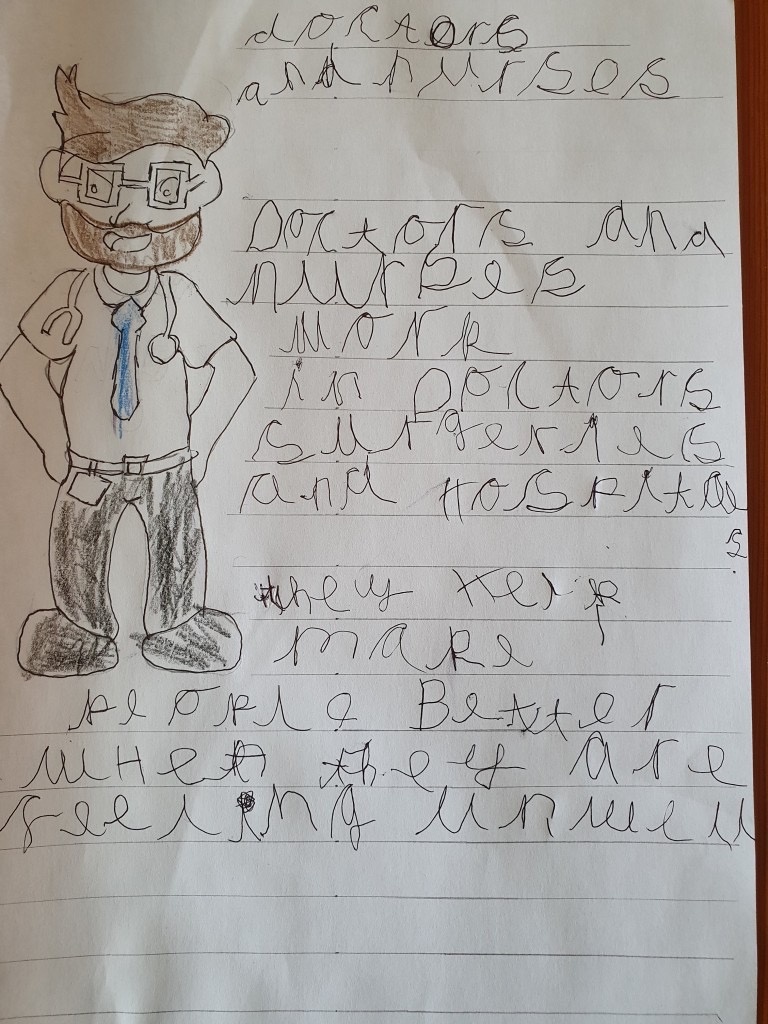 doctors
and nurses
Doctors and
nurses
work
in Doctors
surgeries
and Hospitals
.
they help
make
people Better
when they are
feeling unwell